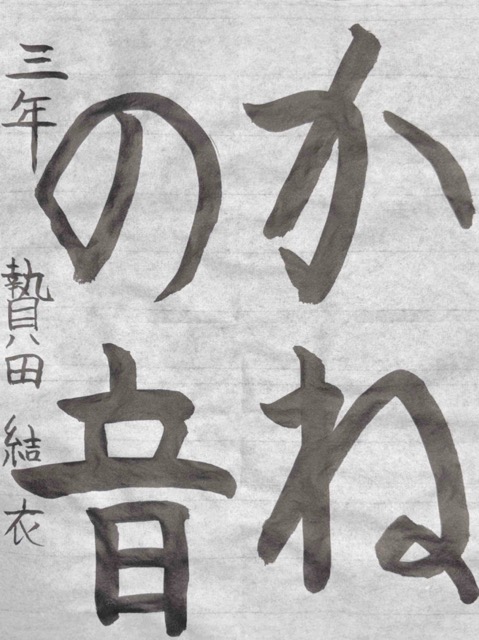 かね
の音
三年 贄田 結衣